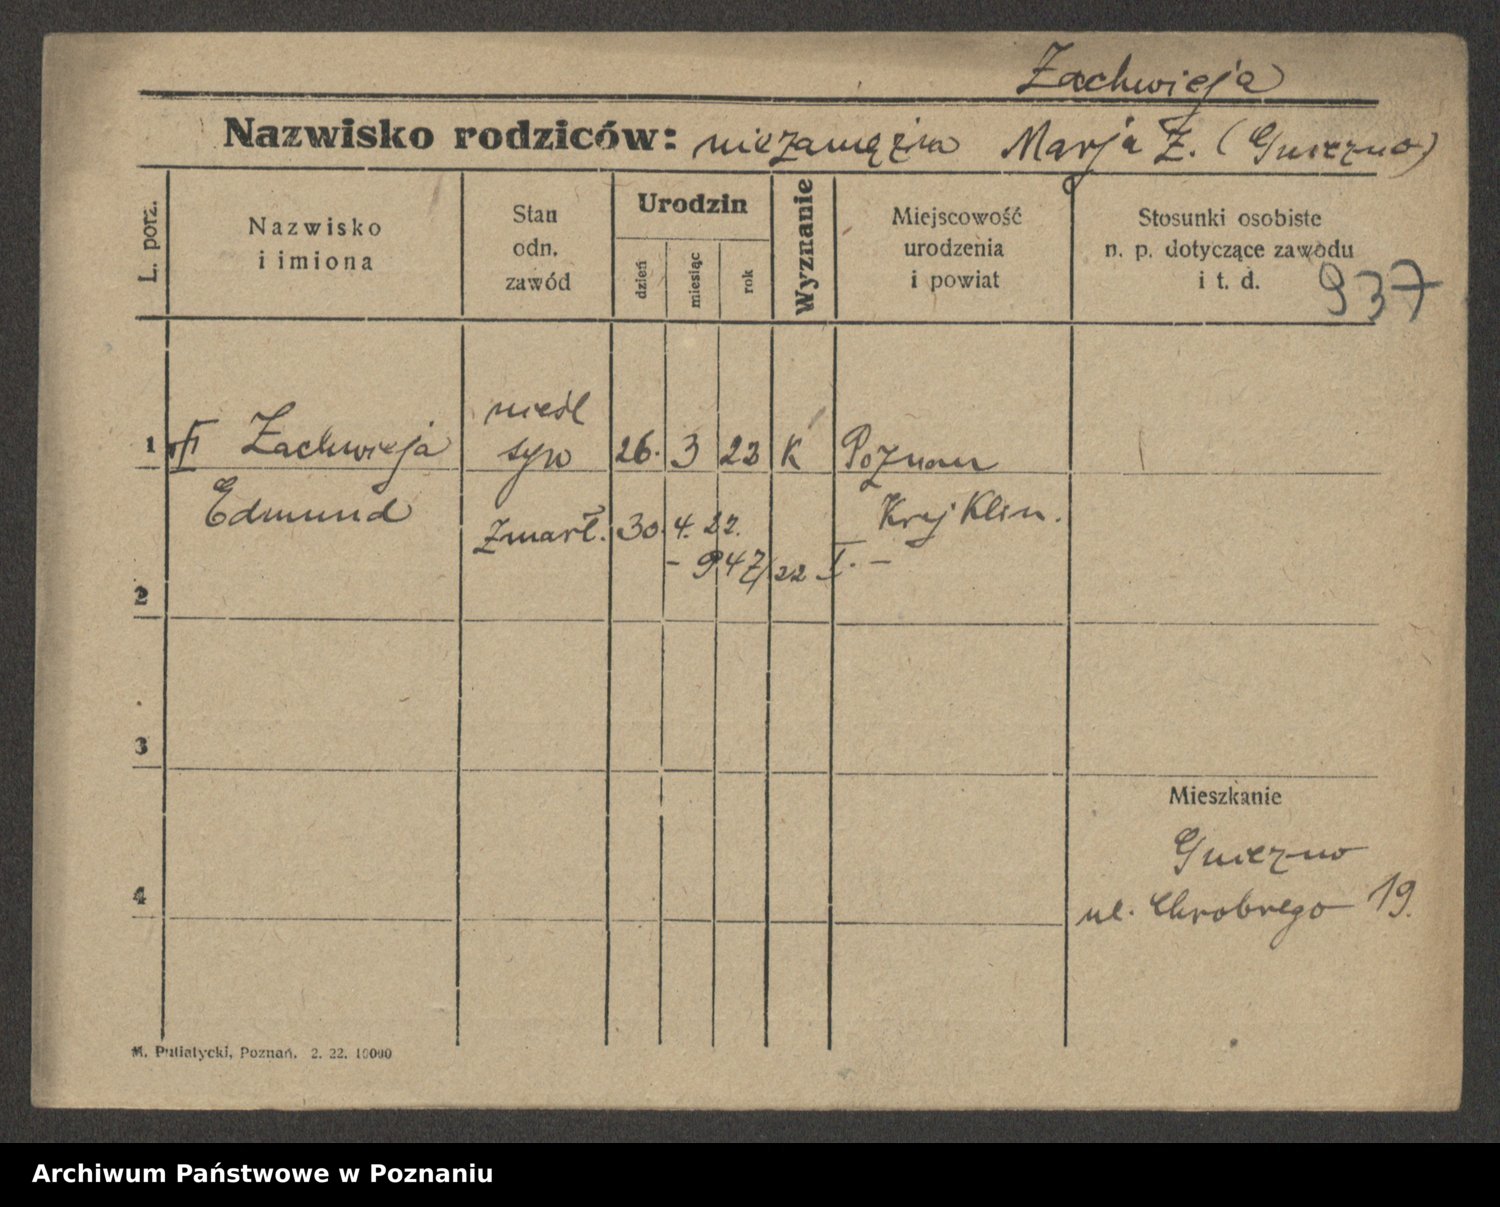 Zachwieja
Nazwisko rodziców: niezamężna Marja Z. (Gniezno)
L. porz.
Nazwisko
i imiona
Stan
odn.
zawód
Urodzin
dzień
miesiąc
rok
Wyznanie
Miejscowość
urodzenia
i powiat
Stosunki osobiste
n. p. dotyczące zawodu
i t. d.
937
nieśl
1 Zachwieja syn 26. 3 22 K Poznań
Edmund zmarł. 30. 4. 22. Kraj Klin.
- 947/22 I. -
2
3
Mieszkanie
Gniezno
4
ul. Chrobrego 19.
M. Putiatycki, Poznań. 2. 22. 10000
Archiwum Państwowe w Poznaniu